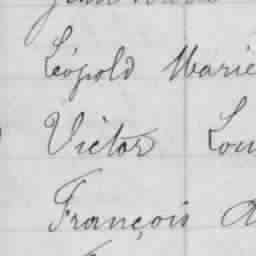 Léopold Marie
Victor Lou
François A